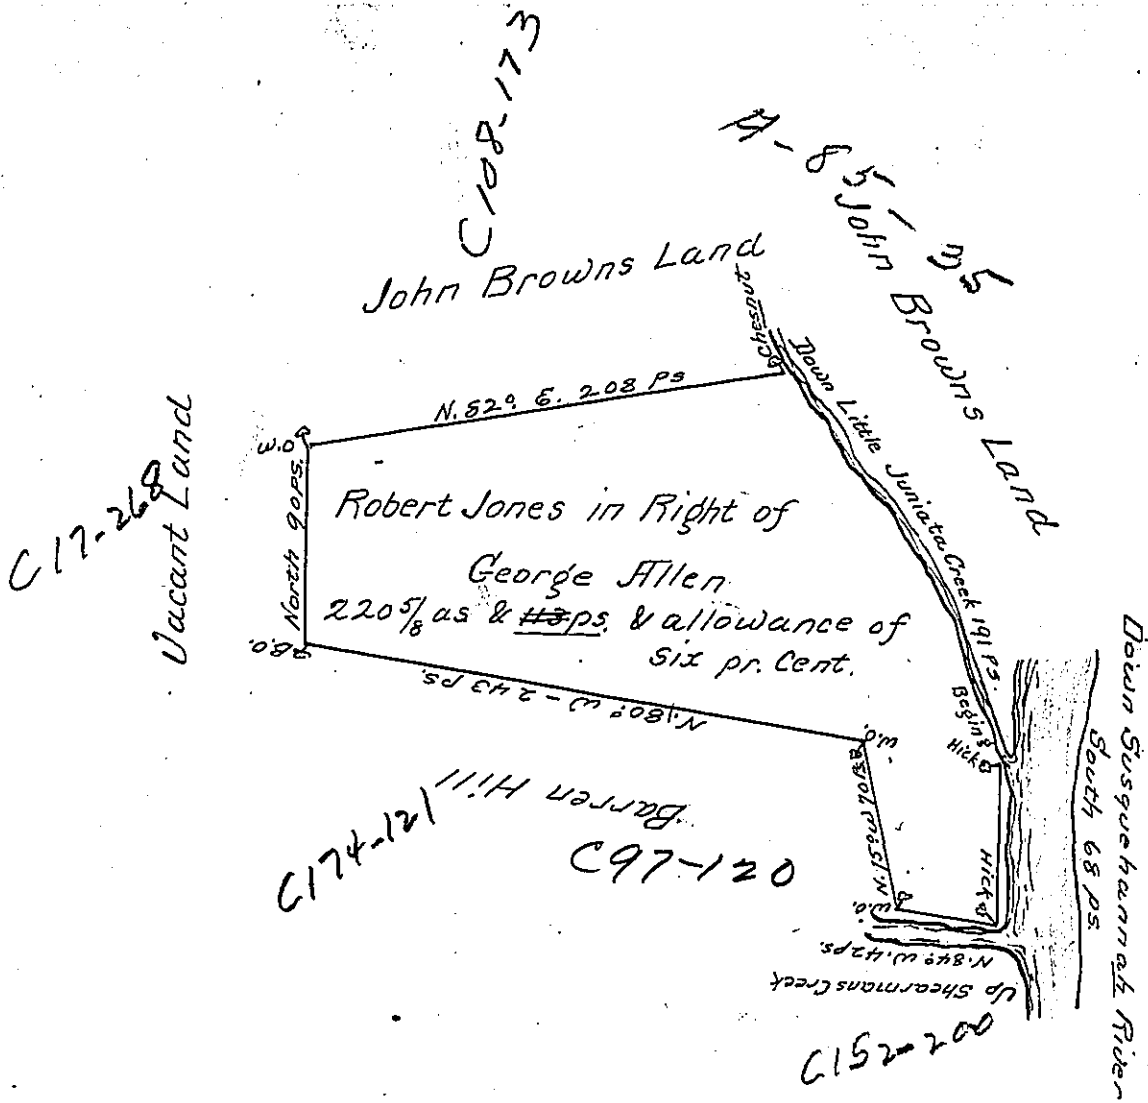 C108-173
A-85-35
John Browns Land
John Browns Land
Chesnut
Down Little Juniata Creek 191 Ps.
N. 82° E. 208 Ps
W.O
North 90 Ps.
Vacant Land
C17-268
Robert Jones in Right of
George Allen
220 5/8 as & ps. & allowance of
six pr. Cent.
B.O.
N. 80° W - 243 ps.
W.O.
Begin
Hick
Hick
N. 15° W. 70 ps
W.O.
Barren Hill
C174-121
C97-120
N. 84° W. 42 ps.
Up Shearmans Creek
C152-200
Down Susquehannah River
South 68 ps.